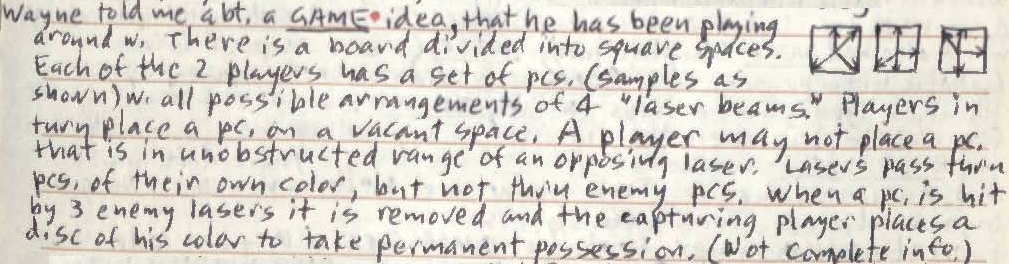 Wayne told me abt. a GAME idea, that he has been playing
around w. There is a board divided into square spaces.
Each of the 2 players has a set of pcs. (samples as
shown) w. all possible arrangements of 4 "laser beams." Players in
turn place a pc. on a vacant space. A player may not place a pc.
that is in unobstructed range of an opposing laser. Lasers pass thru
pcs. of their own color, but not thru enemy pcs. When a pc. is hit
by 3 enemy lasers it is removed and the capturing player places a
disc of his color to take permanent possession. (Not complete info.)